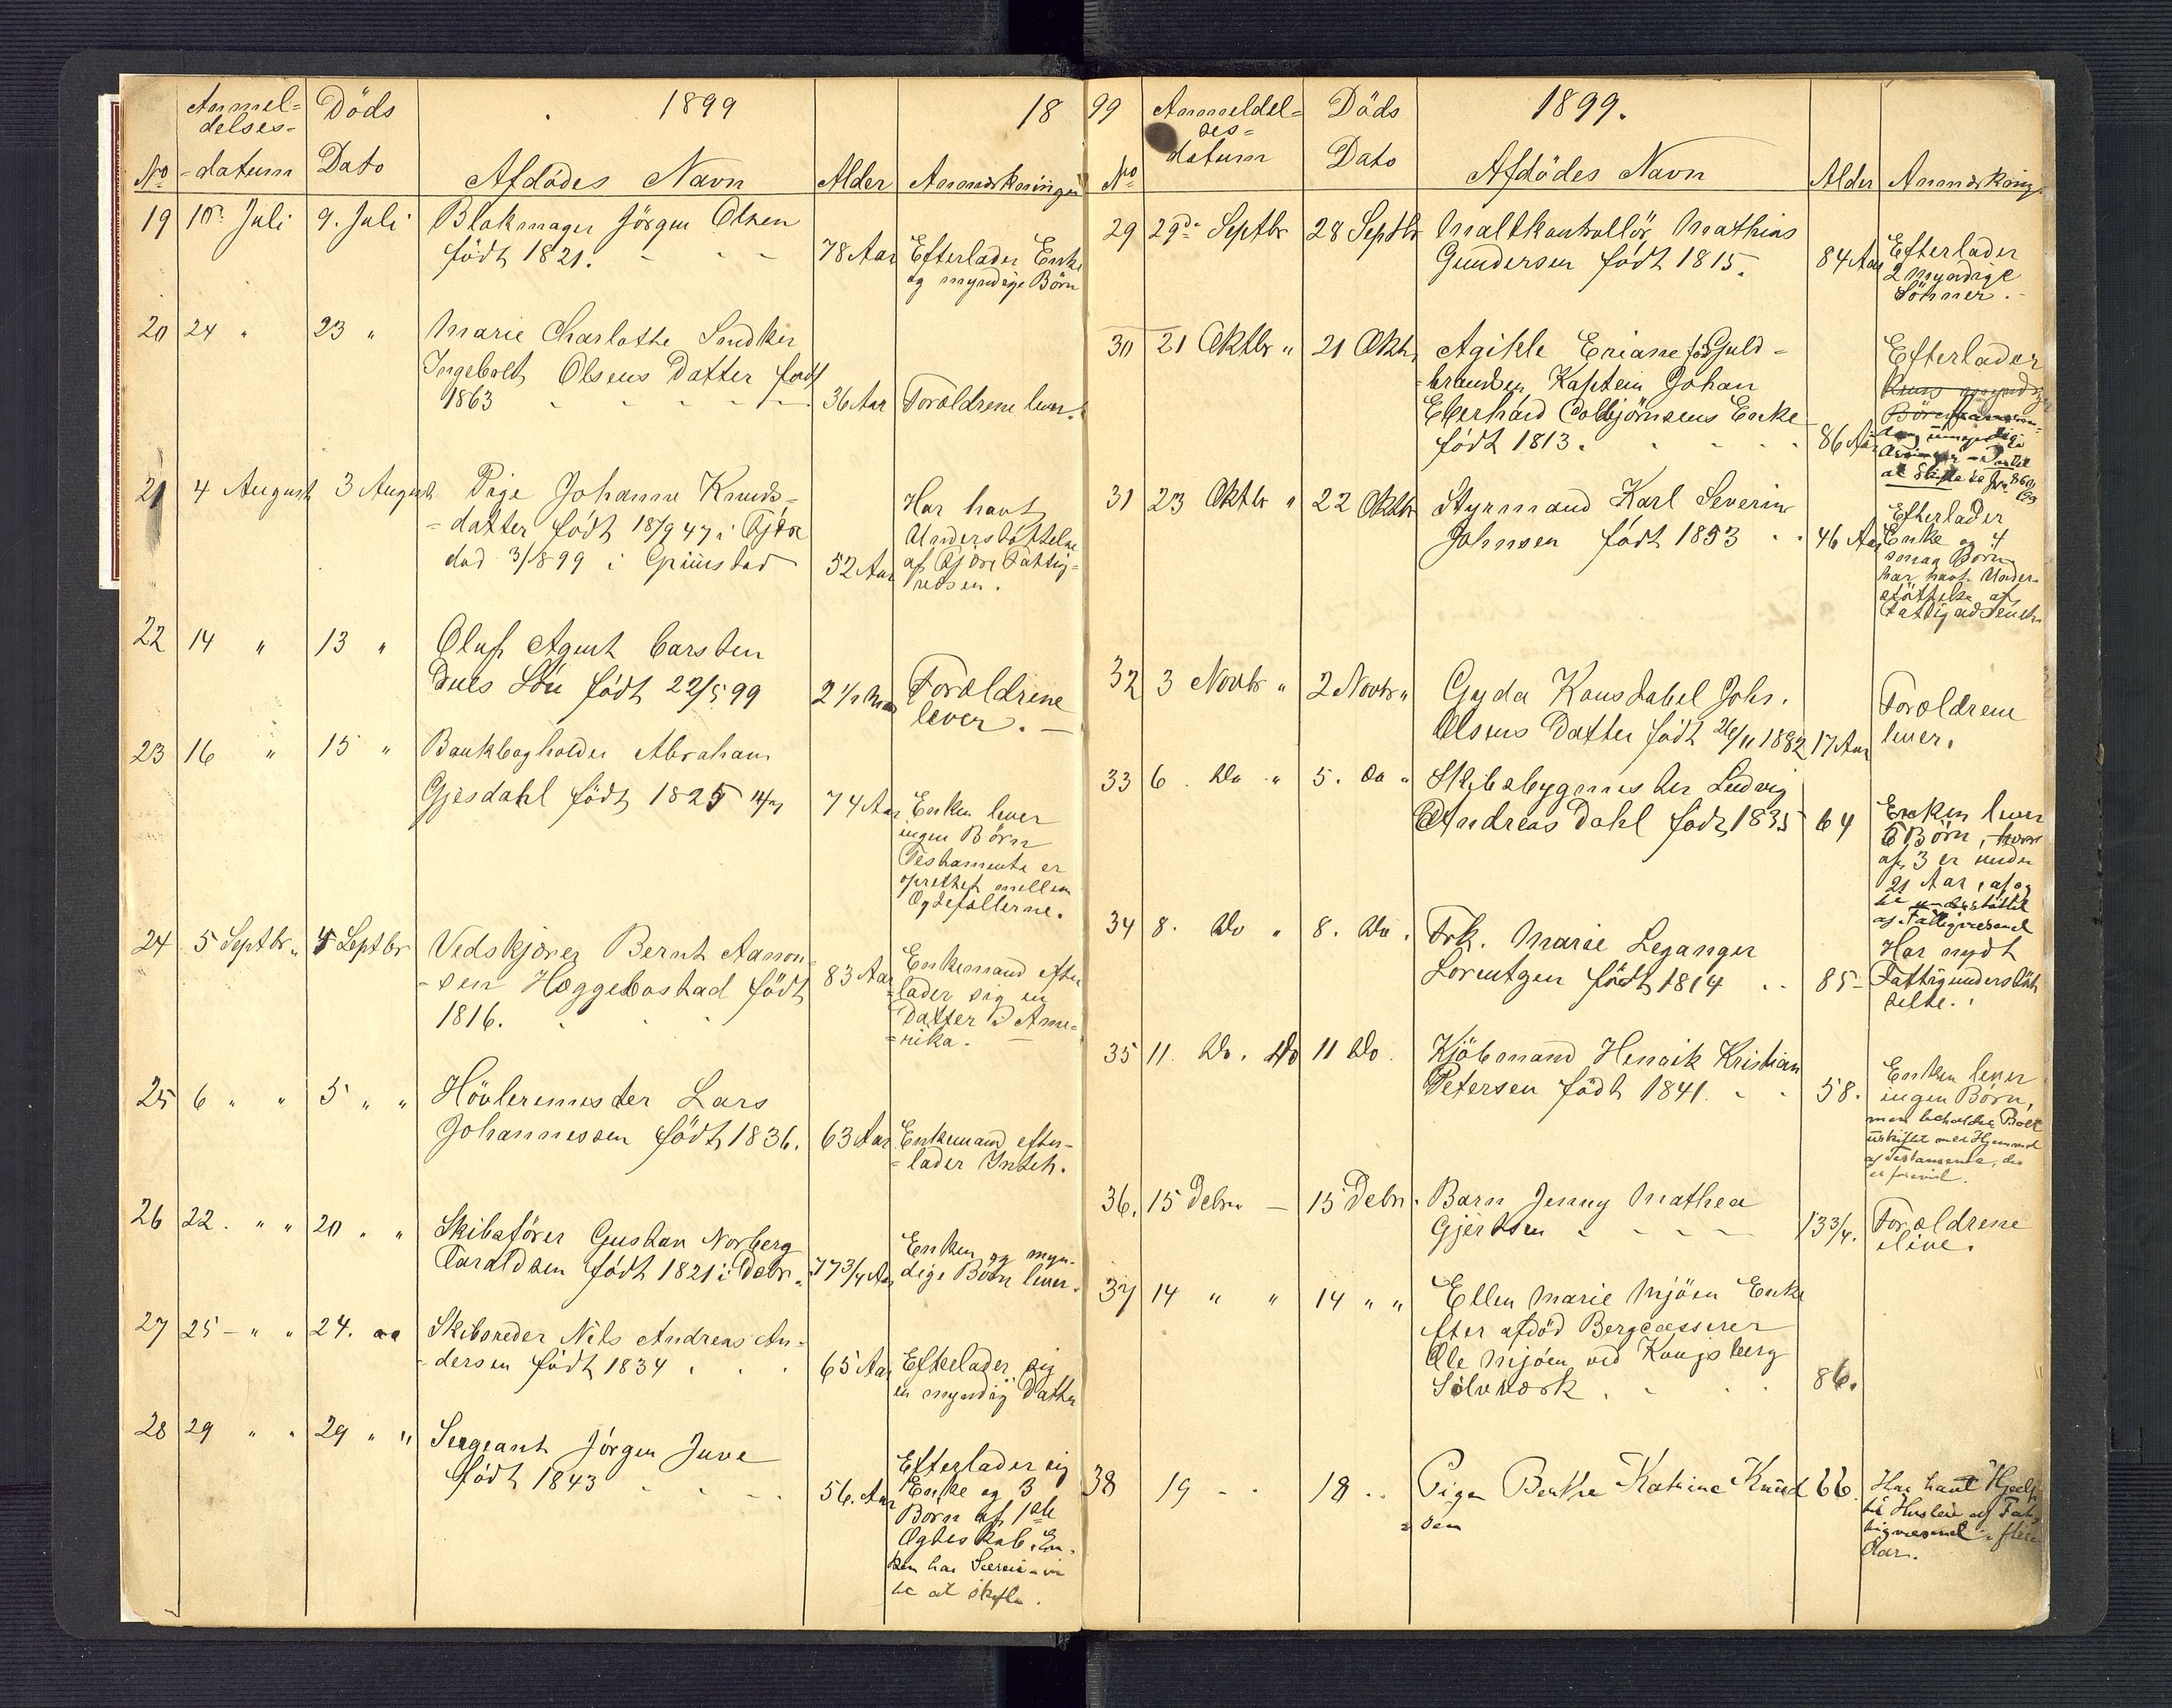 1899 18
Anmel=
delses=
Döds
No =datum Dato Afdödes Navn Alder Anmærkninger
19 10. Juli 9. Juli Blokmager Jörgen Olsen
födt 1821. 78 Aar Efterlader Enke
og myndige Börn
20 24 " 23 " Marie Charlothe Snedker
Ingebret Olsens Datter født
1863 36 Aar Forældrene lever.
21 4 August 3 August Pige Johanne Knuds=
=datter født 18/9 47 i Fjære
död 3/8 99 i Grimstad 52 Aar
Har havt
Understöttelse
af Fjære Fattig=
væsen.
22 14 " 13 " Oluf Agent Carsten
Dues Sön født 22/5 99 2 1/2 Mnd Forældrene
lever. —
23 16 " 15 " Bankbogholder Abraham
Gjesdahl födt 1825 74 Aar Enken lever
ingen Börn
Testamente er
oprettet mellem
Ægtefællerne.
24 5 Septbr " 4 Septbr Vedskjærer Bernt Aanon=
=sen Hæggebostad födt 83 Aar
1816.
Enkemand efter
=lader sig en
Datter i Ame=
=rika.
25 6 " " 5 " " Hövleremester Lars
Johannessen födt 1836. 63 Aar Enkemand efter=
=lader Intet.
26 22. " " 20 " " Skibsförer Gustav Norberg
Taraldsen födt 1821 i Decbr. 77 3/4 Aar Enken og myn=
dige Börn lever.
27 25 — " " 24. " " Skibsreder Nils Andreas An=
=dersen födt 1834 65 Aar Efterlader sig
en myndig Datter
28 29 " " 29 " " Sergeant Jörgen Juve
födt 1843 56. Aar
Efterlader sig
Enke og 3
Börn af 1ste
Ægteskab. En=
ken har
at skifte.
99 1899.
Anmeldel=
ses=
datum
Döds
No Dato Afdödes Navn Alder Anmærkning
29 29de Septbr 28 Septbr Maltkontrollör Mathias
Gundersen födt 1815. 84 Aar Efterlader
2 myndige
Sönner. —
30 21 Oktbr " 21 Oktbr Agikle Eriane föd Guld=
=brandsen, Kaptein Johan
Eberhard Colbjörnsens Enke
födt 1813. 86 Aar
Efterlader
31 23 Oktbr " 22 Oktbr Styrmand Karl Severin
Johnsen födt 1853 46 Aar
Efterlader
Enke og 4
smaa Börn
har havt Under=
stöttelse af
32 3 Novbr " 2 Novbr " Gyda Konstabel Johs.
Olsens Datter födt 26/11 1882 17 Aar
Forældrene
lever.
33 6. Do " 5. Do " Skibsbygmester Ludvig
Andreas Dahl födt 1835 64
Enken lever
6 Börn, hvor
af 3 er under
21 Aar, af og
til understöttet
af Fattigvæsenet
34 8. Do " 8. Do. Frk. Marie Leganger
Lorentzen födt 1814 85 —
Har nydt
Fattigunderstöt
telse.
35 11. Do. Do 11 Do. Kjöbmand Henrik Kristian
Petersen födt 1841. 58.
Enken lever
ingen Börn,
men beholder Boet
uskiftet med Hjemmel
af Testamente, der
er forevist.
36. 15 Debr. — 15 Debr. Barn Jenny Mathea
Gjertsen 13 3/4. Forældrene
ilive.
37 14 " " 14 " " Ellen Marie Mjöen Enke
efter afdöd Bergcasserer
Ole Mjöen ved Kongsberg
Sölvværk 86.
38 19 18 Pige Berthe Katrine Knud
=sen 66. Har havt Hjælp
til Husleie af Fat=
tigvæsenet i flere
Aar.